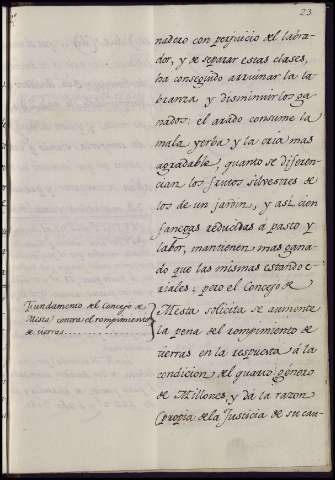 23
nadero con perjuicio del labra-
dor, y de separar estas clases,
ha conseguido arruinar la la
branza y disminuir los ga
nados: el arado consume la
mala yerba y la cria mas
agradable, quanto se diferen-
cian los frutos silvestres de
los de un jardin, y asi cien
fanegas reducidas á pasto y
labor, mantienen mas gana
do que las mismas estando e-
riales; pero el Concejo de
Fundamento del Concejo de
Mesta contra el rompimiento
de tierras
Mesta solicita se aumente
la pena del rompimiento de
tierras en la respuesta á la
condicion del quarto genero
de Millones, y dá la razon
propia de la Justicia de su cau-